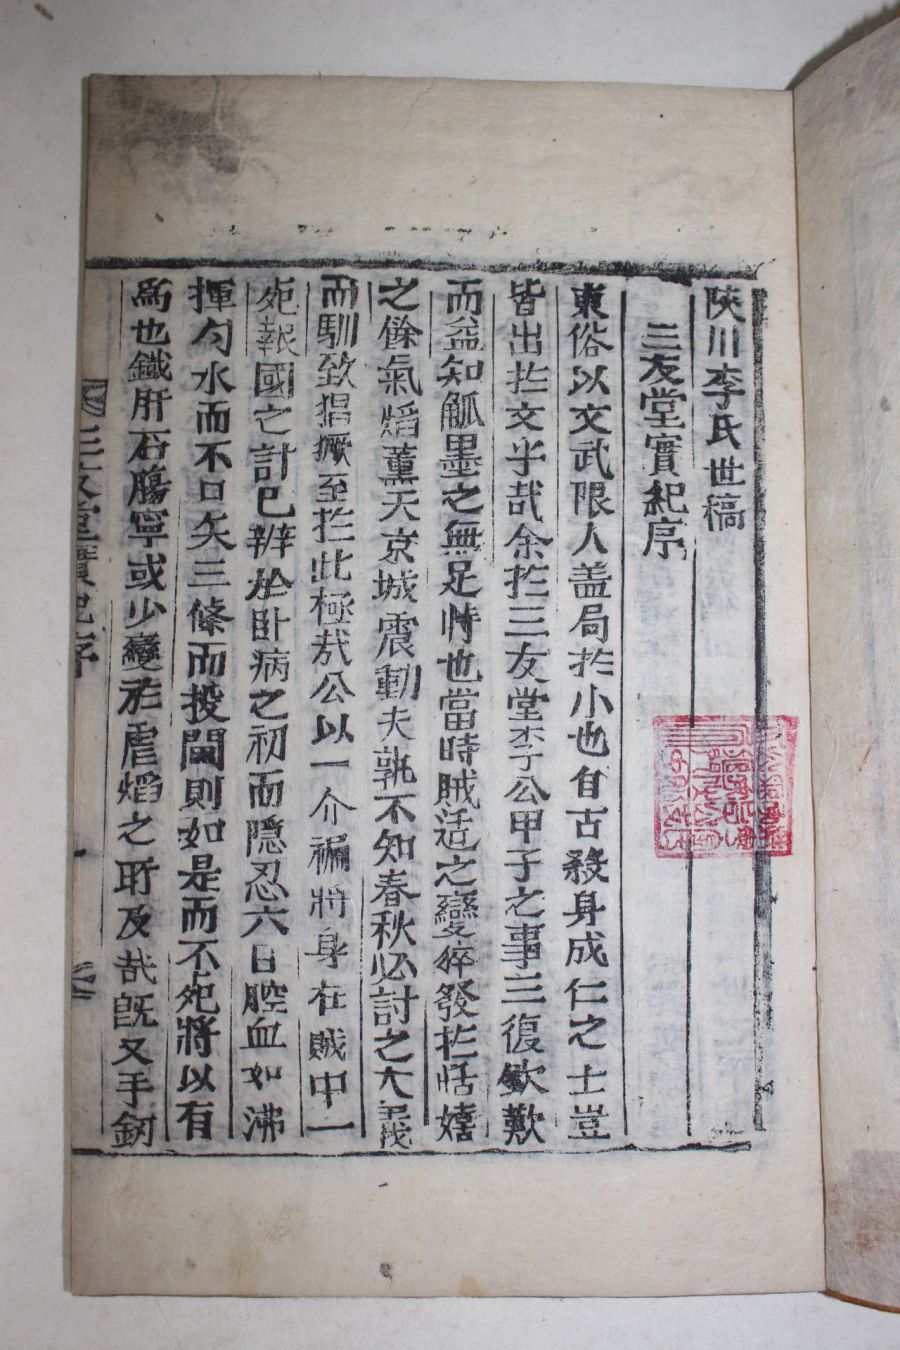 陜川李氏世稿
三友堂實紀序
東俗以文武限人盖局扵小也自古殺身成仁之士豈
皆出扵文乎哉余扵三友堂李公甲子之事三復欽歎
而益知觚墨之無足恃也當時賊适之變猝發扵恬嬉
之餘氣焰薰天京城震動夫孰不知春秋必討之大義
而馴致猖獗至扵此極哉公以一介褊將身在賊中一
死報國之計已辦於卧病之初而隠忍六日腔血如沸
揮勺水而不口矢三條而投閫則如是而不死將以有
爲也鐵肝石膓寧或少變於虐焰之所及哉旣又手釰
三友堂實紀序